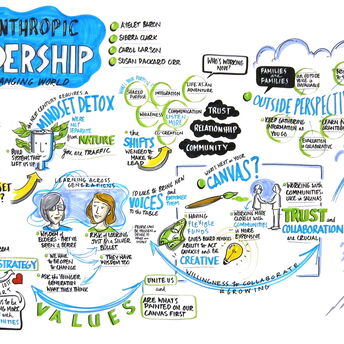 NTHROPIC
DERSHIP
ANGING WORLD
AYELET BARON
SIERRA CLARK
CAROL LARSON
SUSAN PACKARD ORR
NEW CENTURY REQUIRES A
MINDSET DETOX
WE'RE
NOT
SEPARATE
FROM
NATURE
YOU ARE TRAFFIC.
BUILD
SYSTEMS
THAT
LIFT US UP
SHARED
PURPOSE
INTEGRATION
LIFE AS AN
ADVENTURE
COMMUNICATION
LISTEN
MORE
CO-CREATION
the SHIFTS
WE NEED TO
MAKE to
LEAD
WHO'S WORKING
NOW?
TRUST
RELATIONSHIP
COMMUNITY
FAMILIES
AND
FAMILIES
OUTSIDE PERSPECTI
KEEP GATHERING
INFORMATION AS
YOU GO
LEARN
EVALUATION is
COLLABORATIVE
LEARNING ACROSS
GENERATIONS
WISDOM of
ELDERS-THEY'VE
SEEN a BUNCH
RISK of LOOKING
JUST for a
SILVER
BULLET
WE HAVE to
BE OPEN to
CHANGE
ASK the YOUNGER
GENERATION
WHAT THEY THINK
THEY HAVE
WISDOM TOO
I'D LIKE to BRING NEW
VOICES
and
EMPOWER
THEM
TO the TABLE
WHAT'S NEXT on YOUR
CANVAS?
HAVING
FLEXIBLE
FUNDS
GIVES BOARD MEMBERS
ABILITY to ACT
on VALUES and be
CREATIVE
WORKING MORE
CLOSELY with
COMMUNITIES
is MORE
EXPENSIVE
WORKING with
COMMUNITIES
LIKE in
SALINAS
TRUST
and
COLLABORATION
are CRUCIAL
WILLINGNESS to COLLABORATE
is GROWING
STRATEGY
VALUES
UNITE US
and
ARE WHAT'S
PAINTED ON OUR
CANVAS FIRST